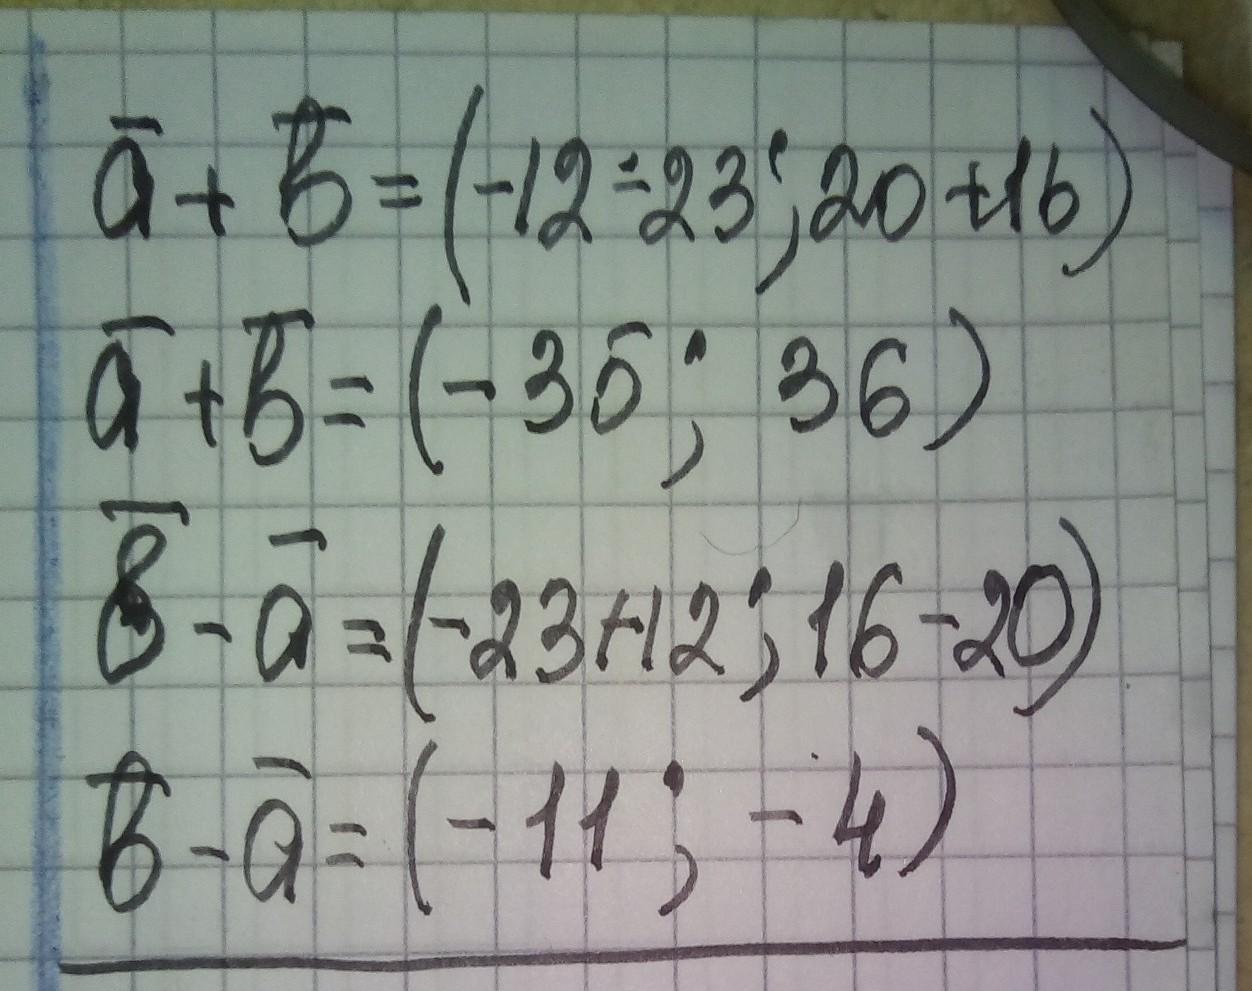 a̅ + b̅ = (-12-23; 20+16)
a̅ + b̅ = (-35; 36)
b̅ - a̅ = (-23+12; 16-20)
b̅ - a̅ = (-11; -4)